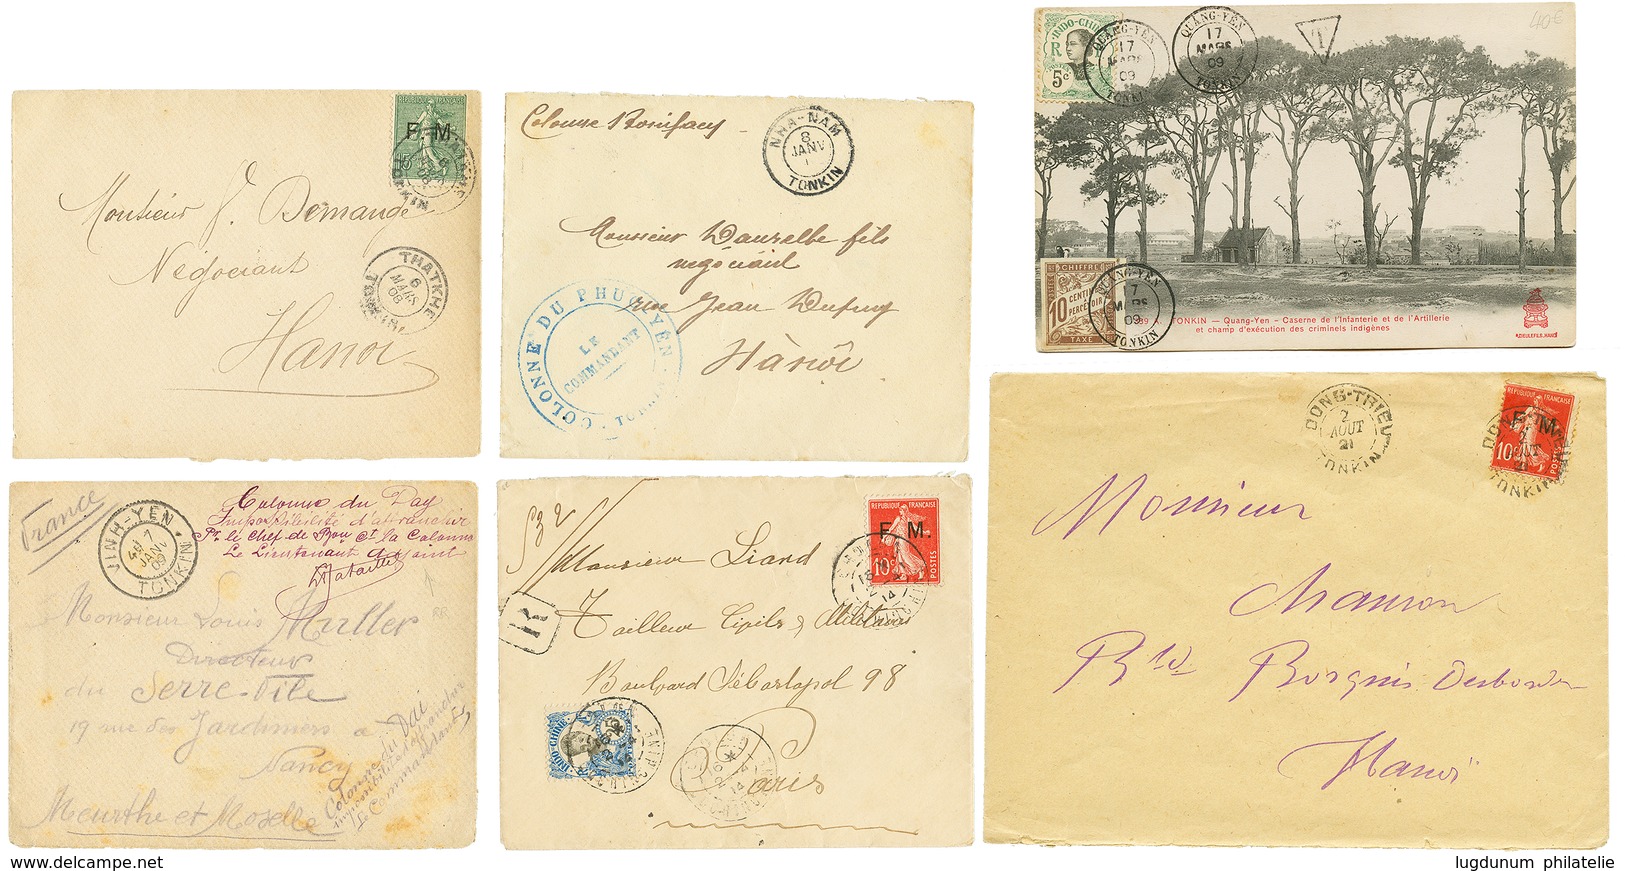 RÉPUBLIQUE FRANÇAISE
F. M.
15
Monsieur J. Demange
Négociant
Hanoi
THATKHE
6
MARS
08
Colonne Bonifacy
NHA-NAM
8
JANV
TONKIN
Monsieur
fils
négociant
rue Jean Dupuy
Hànôi
COLONNE DU PHUC-YÊN
LE
COMMANDANT
TONKIN
INDO-CHINE
R
5c
QUANG-YEN
17
MARS
09
TONKIN
QUANG-YEN
17
MARS
09
TONKIN
T
40€
CHIFFRE
10
CENTIMES
PERCEVOIR
TAXE
QUANG-YEN
17
MARS
09
TONKIN
TONKIN — Quang-Yen - Caserne de l'Infanterie et de l'Artillerie
et champ d'exécution des criminels indigènes
France
VINH-YEN
7
JANV
09
TONKIN
Colonne du Day
Impossibilité d'affranchir
Pt. le Chef de Bon Ct la Colonne
Le Lieutenant adjoint
RR
Monsieur Louis Muller
Directeur
du Serre-File
19 rue des Jardiniers à
Nancy
Meurthe et Moselle
Colonne du Dai
impossibilité d'affranchir
Le Commandant
R
RÉPUBLIQUE FRANÇAISE
F. M.
10c
POSTES
Monsieur Liard
Tailleur Civils & Militaires
Boulevard Sébastopol 98
Paris
INDO-CHINE
DONG-TRIEU
2
AOUT
21
TONKIN
RÉPUBLIQUE FRANÇAISE
F. M.
10c
POSTES
Monsieur
Bd Borgnis Desbordes
Hanoï
lugdunum philatelie